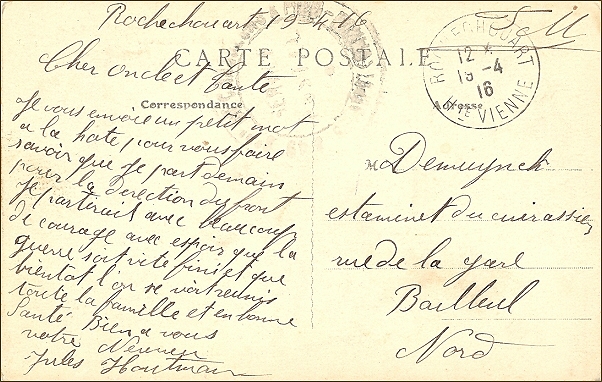 Rochechouart 19-4-16
CARTE POSTALE
Correspondance
Cher oncle et Tante
Je vous envoie un petit mot
a la hate pour vous faire
savoir que je part demain
pour la direction du front
je partirait avec beaucoup
de courage avec espoir que la
guerre soit vite finie et que
bientot l'on se voit reunis
toute la famille et en bonne
Santé Bien a vous
votre Neveu
Jules Houtman
F M
ROCHECHOUART
12 *
19 -4
16
Hte VIENNE
Adresse
M Demuynck
estaminet du cuirassier
rue de la gare
Bailleul
Nord